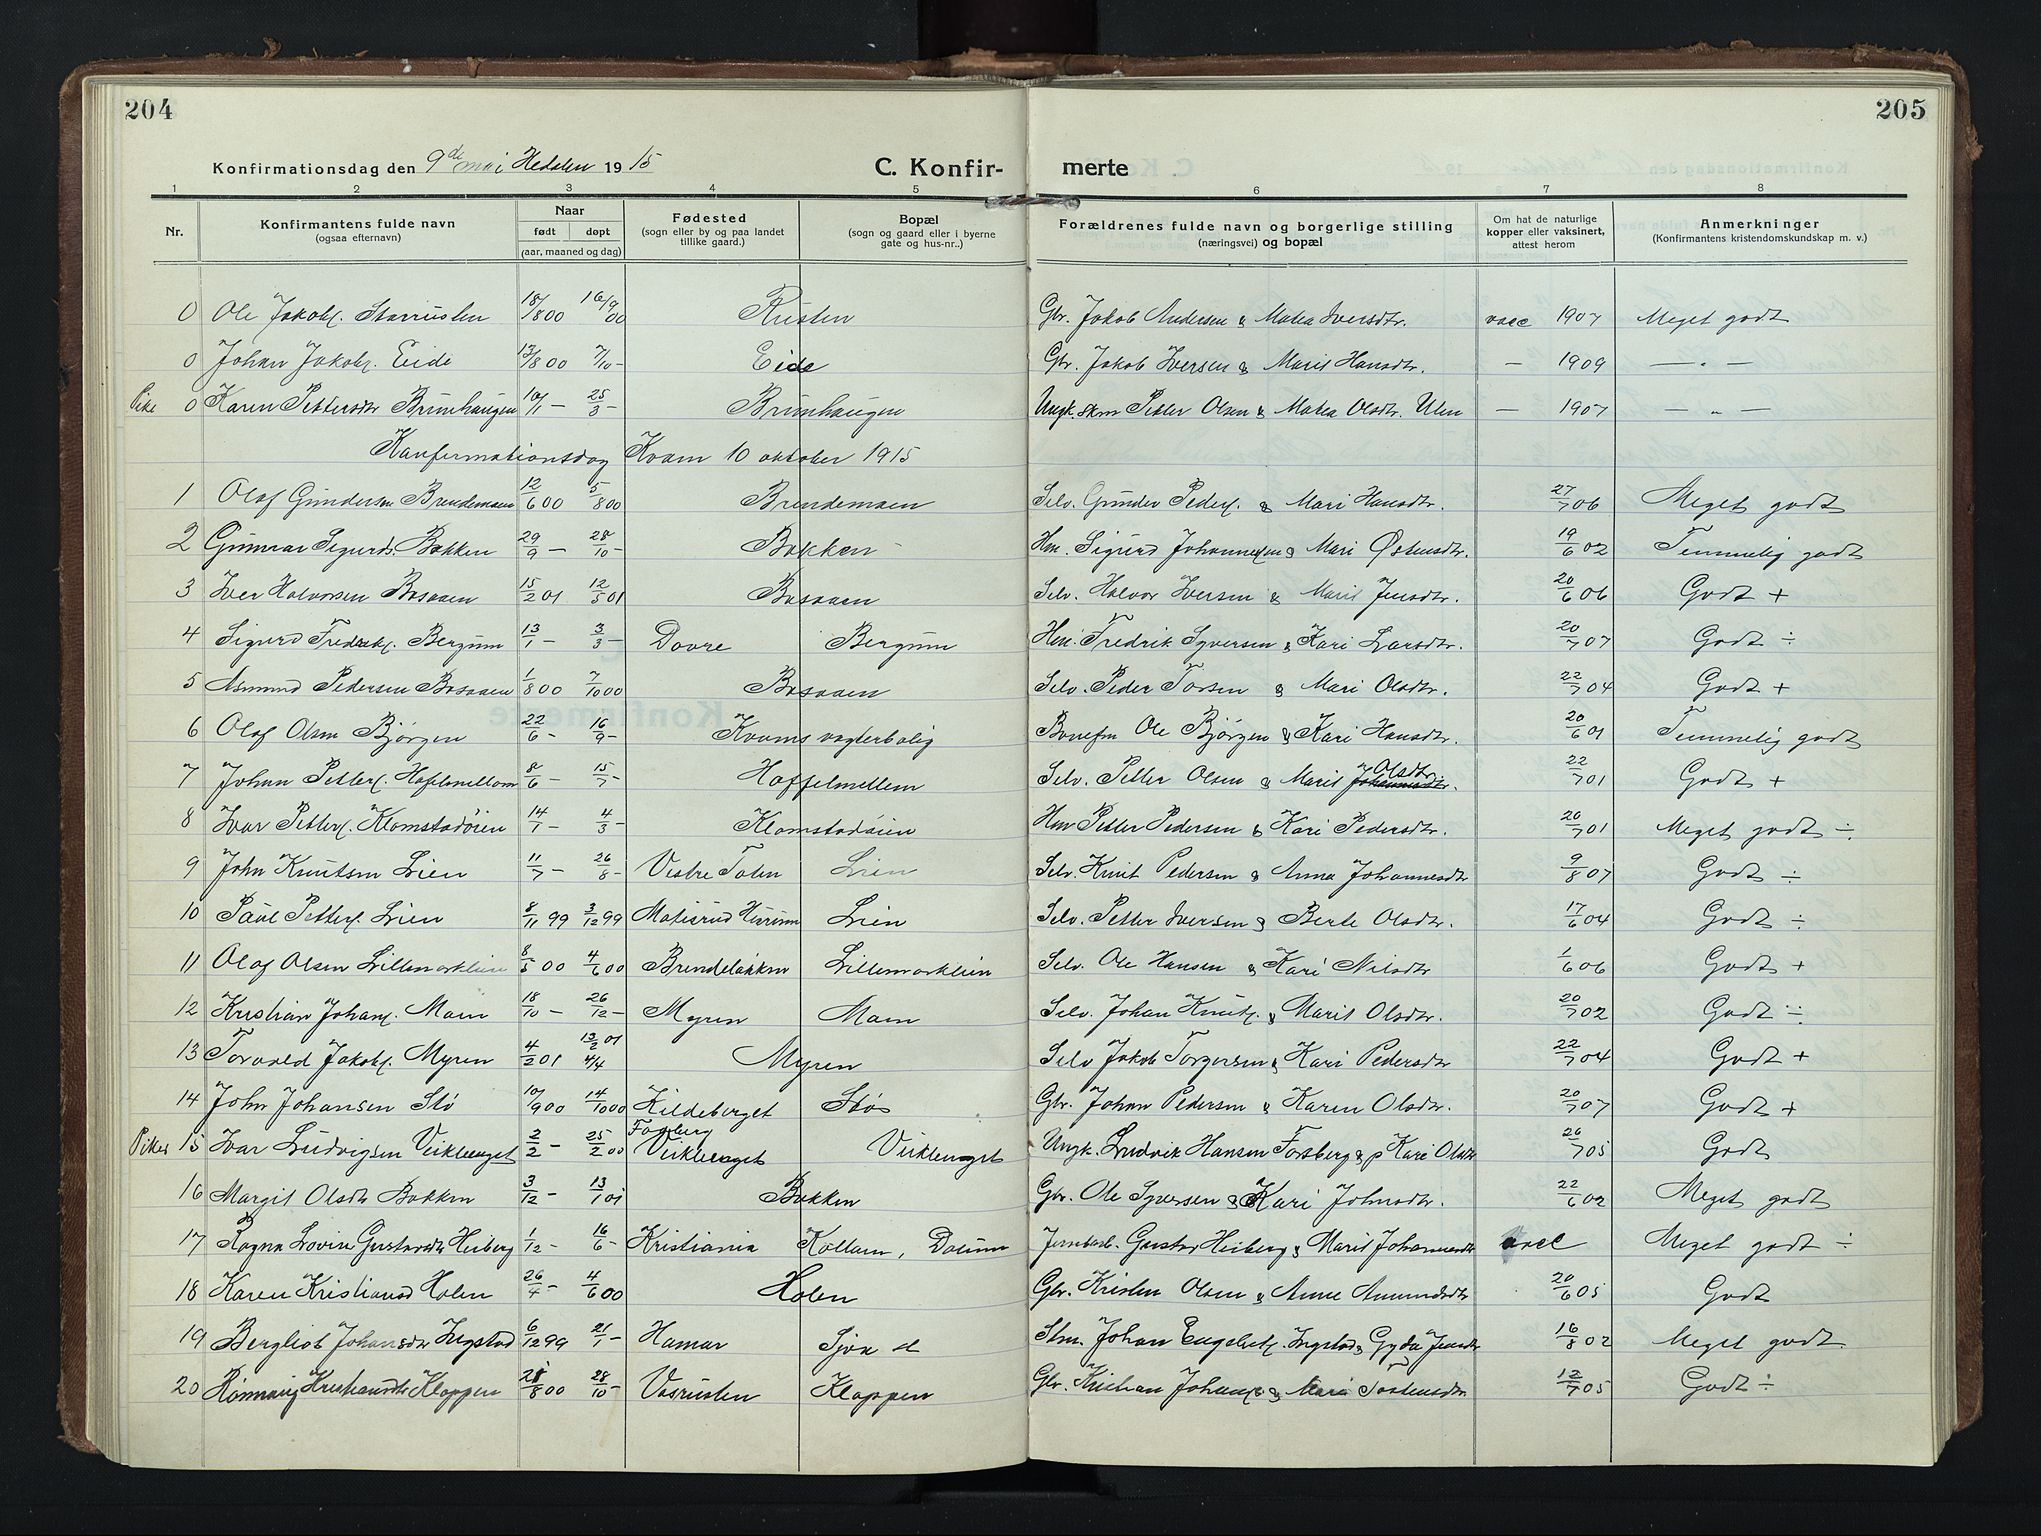 204
205
Konfirmationsdag den 9de mai Hedalen 1915
C. Konfir- merte
1 2 3 4 5 6 7 8
Nr. Konfirmantens fulde navn (ogsaa efternavn) Naar født døpt (aar, maaned og dag) Fødested (sogn eller by og paa landet tillike gaard.) Bopæl (sogn og gaard eller i byerne gate og hus-nr..) Forældrenes fulde navn og borgerlige stilling (næringsvei) og bopæl Om hat de naturlige kopper eller vaksinert, attest herom Anmerkninger (Konfirmantens kristendomskundskap m. v.)
0 Ole Jakobs. Starruslen 18/8 00 16/9 00 Rusten Gbr. Jakob Andersen & Matea Iversdtr. vacc 1907 Meget godt
0 Johan Jakobs. Eide 13/8 00 7/10 - Eide Gbr. Jakob Iversen & Marit Hansdtr. — 1909 — " —
Pike 0 Karen Pettersdtr Brunhaugen 10/1 - 25/3 - Brunhaugen Ungk. skm Petter Olsen & Matea Olsdtr. Ulen — 1907 — " —
Konfirmationsdag Kvam 10 oktober 1915
1 Olaf Gundersen Brendemoen 12/6 00 5/8 00 Brendemoen Selv. Gunder Peders. & Mari Hansdtr. 27/7 06 Meget godt
2 Gunnar Sigurds. Bakken 29/9 - 28/10 - Bakken Hm. Sigurd Johannesen & Mari Østensdtr. 19/6 02 Temmelig godt
3 Iver Halvorsen Basaaen 15/2 01 12/5 01 Basaaen Selv. Halvor Iversen & Marit Jensdtr. 20/6 06 Godt +
4 Sigurd Fredriks. Bergum 13/1 - 3/3 - Dovre Bergum Hm. Fredrik Syversen & Kari Larsdtr. 20/7 07 Godt ÷
5 Asmund Pedersen Basaaen 1/8 00 7/10 00 Basaaen Selv. Peder Torsen & Mari Olsdtr. 22/7 04 Godt +
6 Olaf Olsen Bjørgen 22/6 - 16/9 - Kvams vogterbolig Banefm Ole Bjørgen & Kari Hansdtr. 20/6 01 Temmelig godt
7 Johan Petters. Hoffelmellom 8/6 - 15/7 - Hoffelmellem Selv. Petter Olsen & Marit Johannesdtr. Olsdtr. 22/7 01 Godt +
8 Ivar Petters. Klomstadøien 14/1 - 4/3 - Klomstadøien Hm Petter Pedersen & Kari Pedersdtr. 20/7 01 Meget godt ÷
9 John Knutsen Lien 11/7 - 26/8 - Vestre Toten Lien Selv. Knut Pedersen & Anna Johannesdtr 9/8 07 Godt ÷
10 Paul Petters. Lien 8/11 99 3/12 99 Lien Selv. Petter Iversen & Berte Olsdtr. 17/6 04 Godt ÷
11 Olaf Olsen Lillemorklien 8/5 00 4/6 00 Brendeløkken Lillemorklien Selv. Ole Hansen & Kari Nilsdtr 1/6 06 Godt +
12 Kristian Johans. Moen 18/10 - 26/12 - Myren Moen Selv. Johan Knuts. & Marit Olsdtr. 20/7 02 Godt ÷
13 Torvald Jakobs. Myren 4/2 01 13/2 01 4/4 Myren Selv Jakob Torgersen & Kari Pedersdtr 22/7 04 Godt +
14 John Johansen Stø 10/9 00 14/10 00 Kildeberget Stø Gbr. Johan Pedersen & Karen Olsdtr. 20/7 07 Godt +
15 Ivar Ludvigsen Veikleenget 2/2 - 25/2 00 Veikleenget Veikleenget Ungk. Ludvik Hansen Forsberg & p Kari Olsdtr 26/7 05 Godt
16 Margit Olsdtr Bakken 3/12 - 13/1 01 Bakken Gbr. Ole Syversen & Kari Johnsdtr. 22/6 02 Meget godt
17 Ragna Lovise Gustavsdtr Heiberg 1/12 - 16/6 - Kristiania Jernbarb. Gustav Heiberg & Marit Johannesdtr vacc Meget godt ÷
18 Karen Kristiansd Holen 26/4 - 4/6 00 Holen Gbr. Kristen Olsen & Anne Amundsdtr 20/6 05 Godt
19 Bergliot Johansdtr Ingstad 6/12 99 21/1 - Hamar Sjoa st Stm. Johan Engebrets. Ingstad & Gyda Jensdtr 16/8 02 Meget godt
20 Rønnaug Kristiansdtr Kloppen 28/8 00 28/10 - Kloppen Gbr. Kristian Johans. & Mari Tostensdtr 12/7 05 Godt ÷